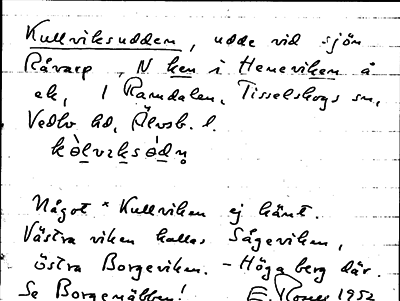 Kullviksudden, udde vid sjön
Råvarp, N ken i Heneviken å
ek, 1 Ramdalen, Tisselskogs sn,
Vedbo hd, Älvsb. l.
Något * Kullviken ej känt.
Västra viken kallas Sågeviken,
östra Borgeviken. - Höga berg där.
Se Borgenäbben! E. 1952